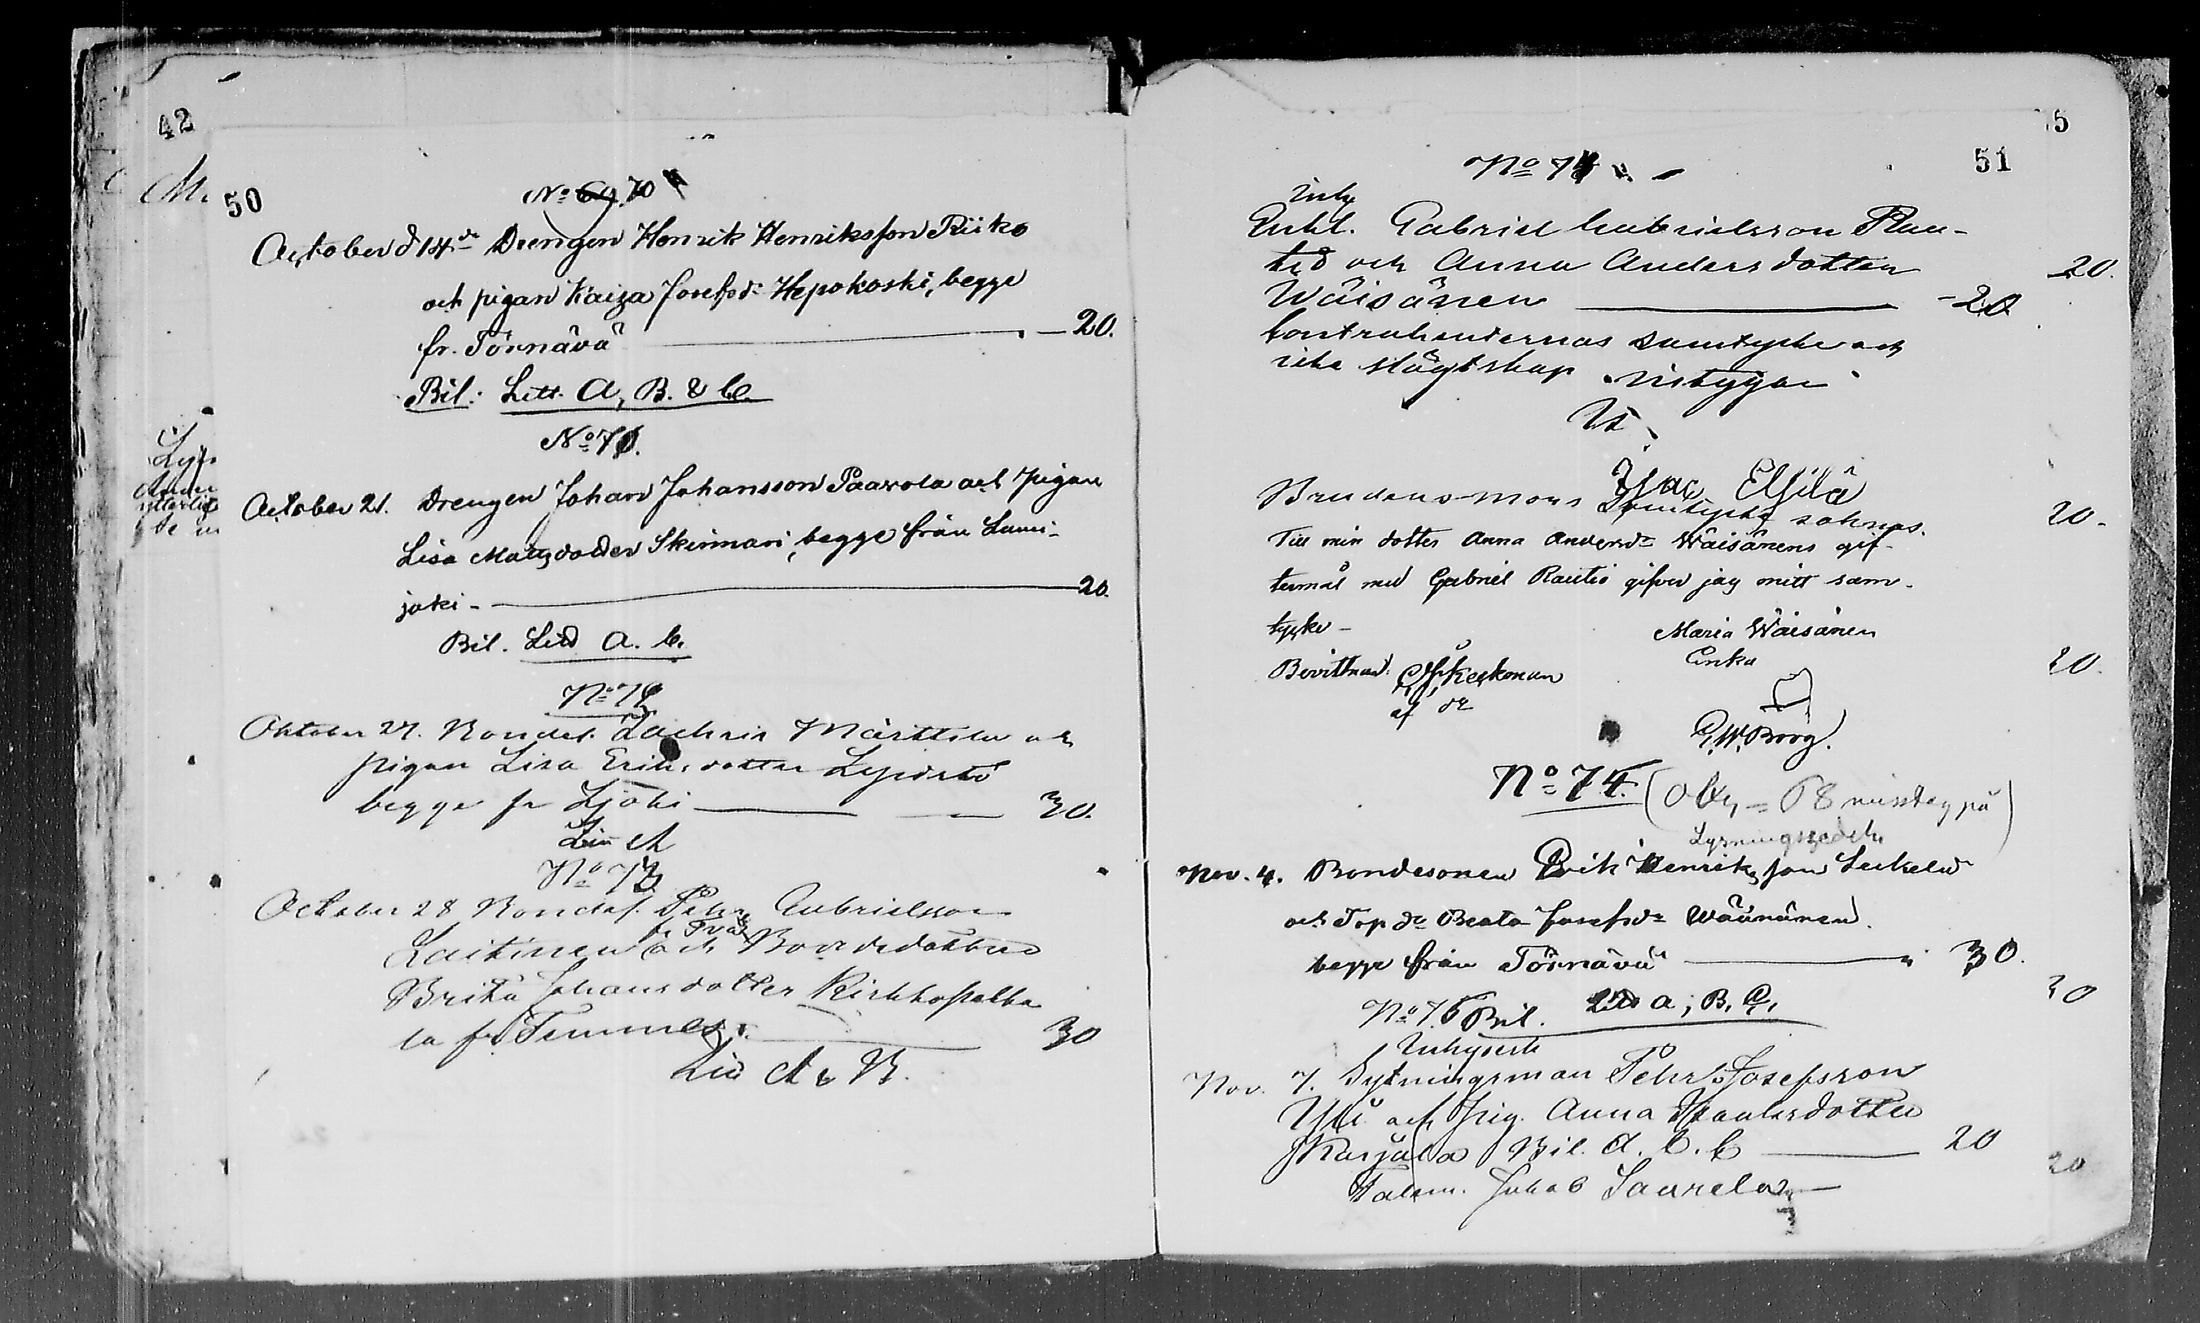 42
M.
50
No 70
October d 14de Drengen Henrik Henriksson Riiko
och pigan Kaiza Josefsd: Hepokoski, begge
fr. Törnävä — 20.
Bil: Litt. A, B. & C.
No 71.
October 21. Drengen Johan Johansson Paavola och pigan
Lisa Matsdotter Skinnari, begge från Lumi-
joki — 20.
Bil. Litt A. C.
No 72
Oktober 27. Bondes. Zachris Märttila och
pigan Lisa Eriksdotter
begge fr Ljoki — 30.
Litt A
No 73
October 28 Bondes. Pehr Gabrielsson
Laitinen och Bondedottren
Brita Johansdotter
la fr Temmes. — 30
Litt A & B.
51
No 74
Enkl. Gabriel Gabrielsson Rau-
tio och Anna Andersdotter
Wäisänen — 20
Kontrahenternas samtycke och
icke slägtskap intygar
Isac Elfilä
Brudens mors samtycke saknas.
Till min dotter Anna Andersdr Wäisänens gif-
termål med Gabriel Rautio gifver jag mitt sam-
tycke —
Maria Wäisänen
Enka
Bevittnad: Keskonen
G.W. Borg.
No 74. (Obs = 68 misstag på
Lysningssedeln)
Nov. 4. Bondesonen Erik Henriksson Leskelä
och Top dr Beata Josefsdr Wäänänen
begge från Törnävä — 30.
No 76 Bil. Litt A, B, C,
Nov. 7. Sytningsman Pehr Josefsson
Yli och pig. Anna Paulsdotter
Karjala Bil. A. B. C — 20
Talem. Jakob Saarela
20.
20.
20.
30
20